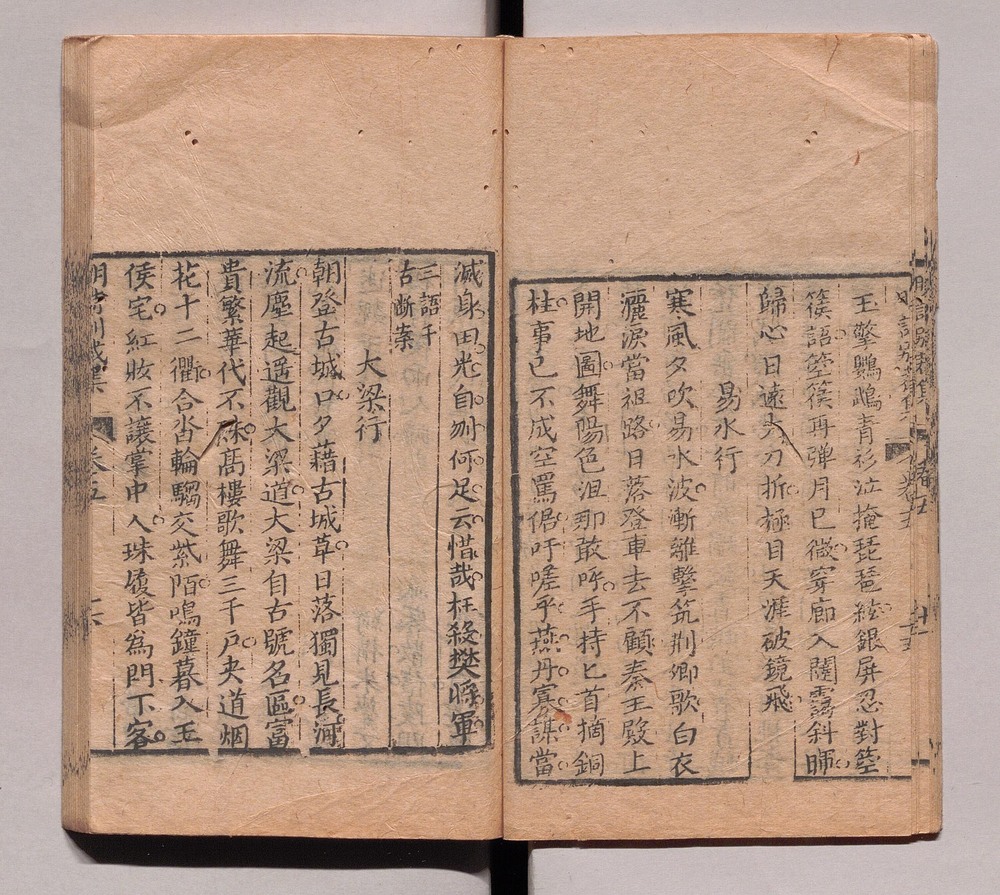 玉擎鸚鵡青衫泣掩琵琶綾銀屏忍對箜
篌語箜篌再彈月已微穿廊入闥靄斜暉
歸心日遠大刀折極目天涯破鏡飛
易水行
寒風夕吹易水波漸離擊筑荆卿歌白衣
灑淚當祖路日落登車去不顧秦王殿上
開地圖舞陽色沮那敢呼手持匕首摘銅
柱事已不成空罵倨吁嗟乎燕丹寡謀當
滅身田光自刎何足云惜哉枉殺樊將軍
三語千
古斷案
大梁行
朝登古城口夕藉古城草日落獨見長河
流塵起遥觀大梁道大梁自古號名區富
貴繁華代不殊高樓歌舞三千户夾道烟
花十二衢合沓輪騶交紫陌鳴鐘暮入王
侯宅紅妝不讓掌中人珠履皆為門下客
卷五